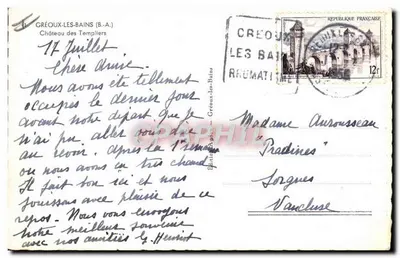 GRÉOUX-LES-BAINS (B.-A.)
Château des Templiers
17 Juillet
Chère Amie.
Nous avons été tellement
occupés le dernier jour
avant notre départ que je
n'ai pu aller vous dire
au revoir. Après la 1ère semaine
où nous avons eu très chaud
Il fait bon ici et nous
jouissons avec plaisir de ce
repos. Nous vous envoyons
notre meilleur souvenir
avec nos amitiés G. Henriot
GREOUX
LES BAI
RHUMATISME
REPUBLIQUE FRANÇAISE
12F
Madame Aurousseau
"Pradines"
Sorgues
Vaucluse